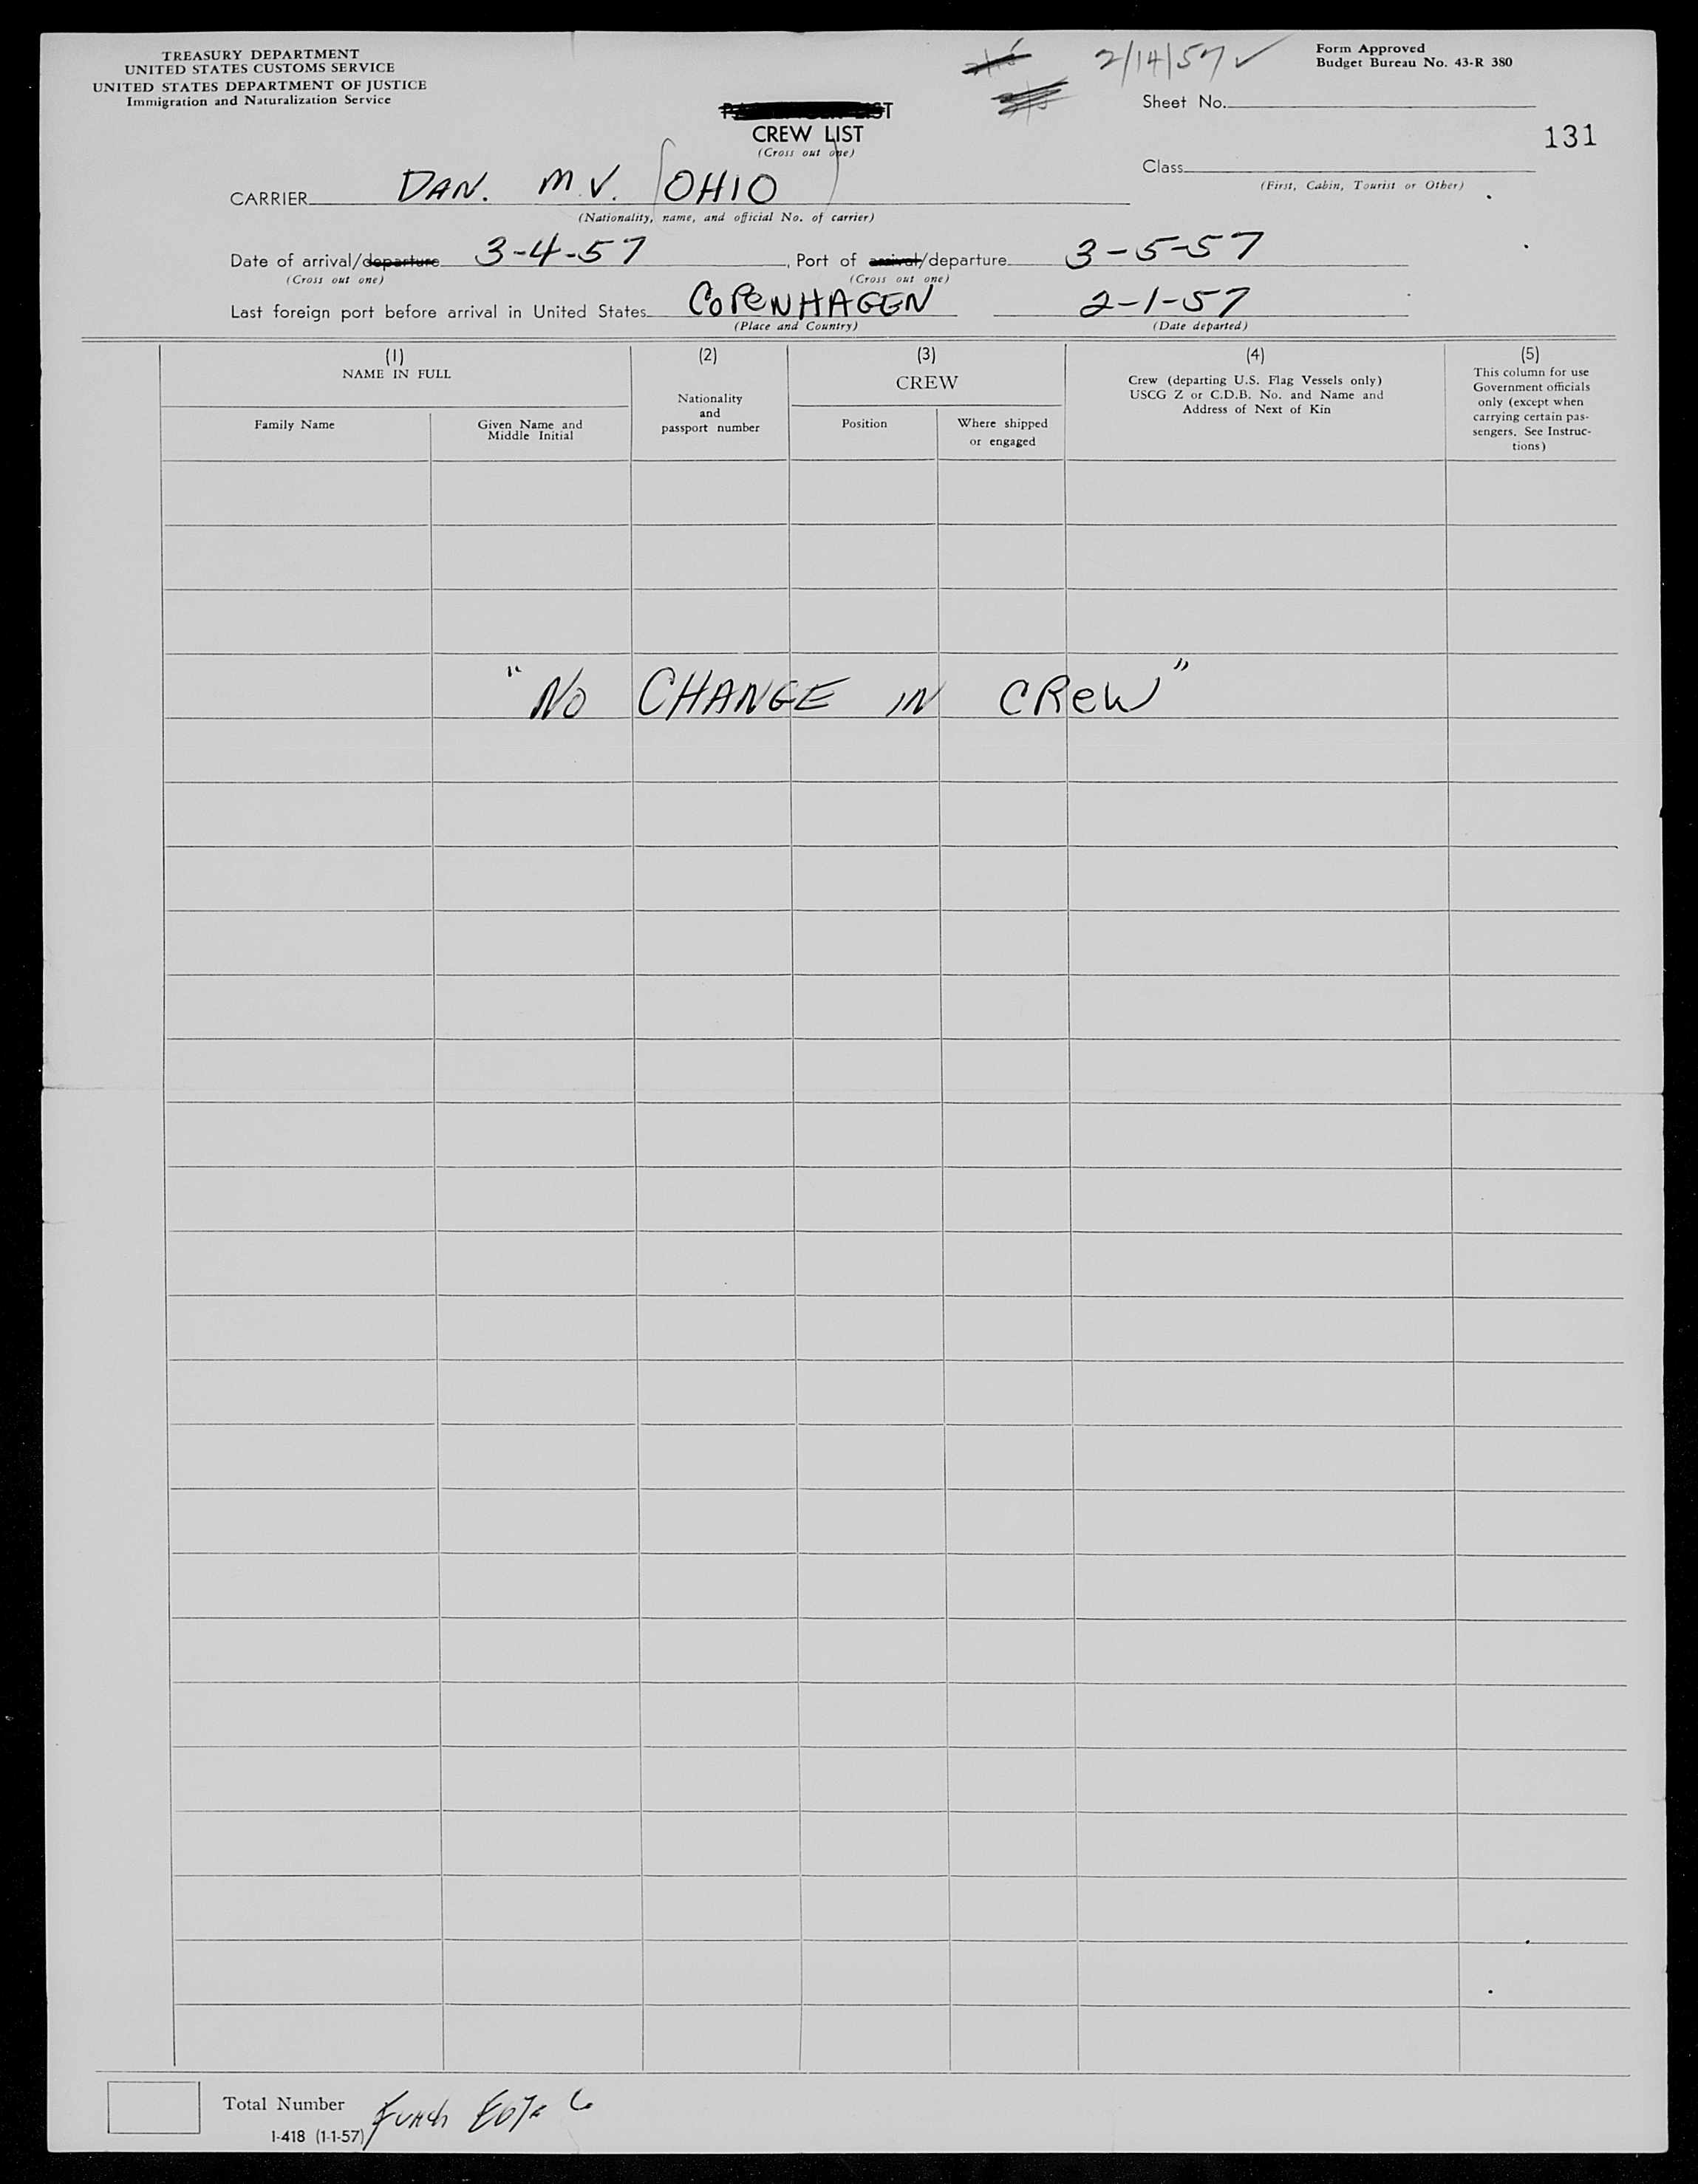 TREASURY DEPARTMENT
UNITED STATES CUSTOMS SERVICE
UNITED STATES DEPARTMENT OF JUSTICE
Immigration and Naturalization Service
2/14/57 ✓
Form Approved
Budget Bureau No. 43-R 380
Sheet No.
131
CREW LIST
(Cross out one)
Class
(First, Cabin, Tourist or Other)
CARRIER DAN. M.V. (OHIO)
(Nationality, name, and official No. of carrier)
Date of arrival/departure 3-4-57, Port of arrival/departure 3-5-57
(Cross out one) (Cross out one)
Last foreign port before arrival in United States COPENHAGEN 2-1-57
(Place and Country) (Date departed)
(1)
NAME IN FULL
Family Name
Given Name and
Middle Initial
(2)
Nationality
and
passport number
(3)
CREW
Position
Where shipped
or engaged
(4)
Crew (departing U.S. Flag Vessels only)
USCG Z or C.D.B. No. and Name and
Address of Next of Kin
(5)
This column for use
Government officials
only (except when
carrying certain pas-
sengers. See Instruc-
tions)
"NO CHANGE IN CREW"
Total Number
I-418 (1-1-57)